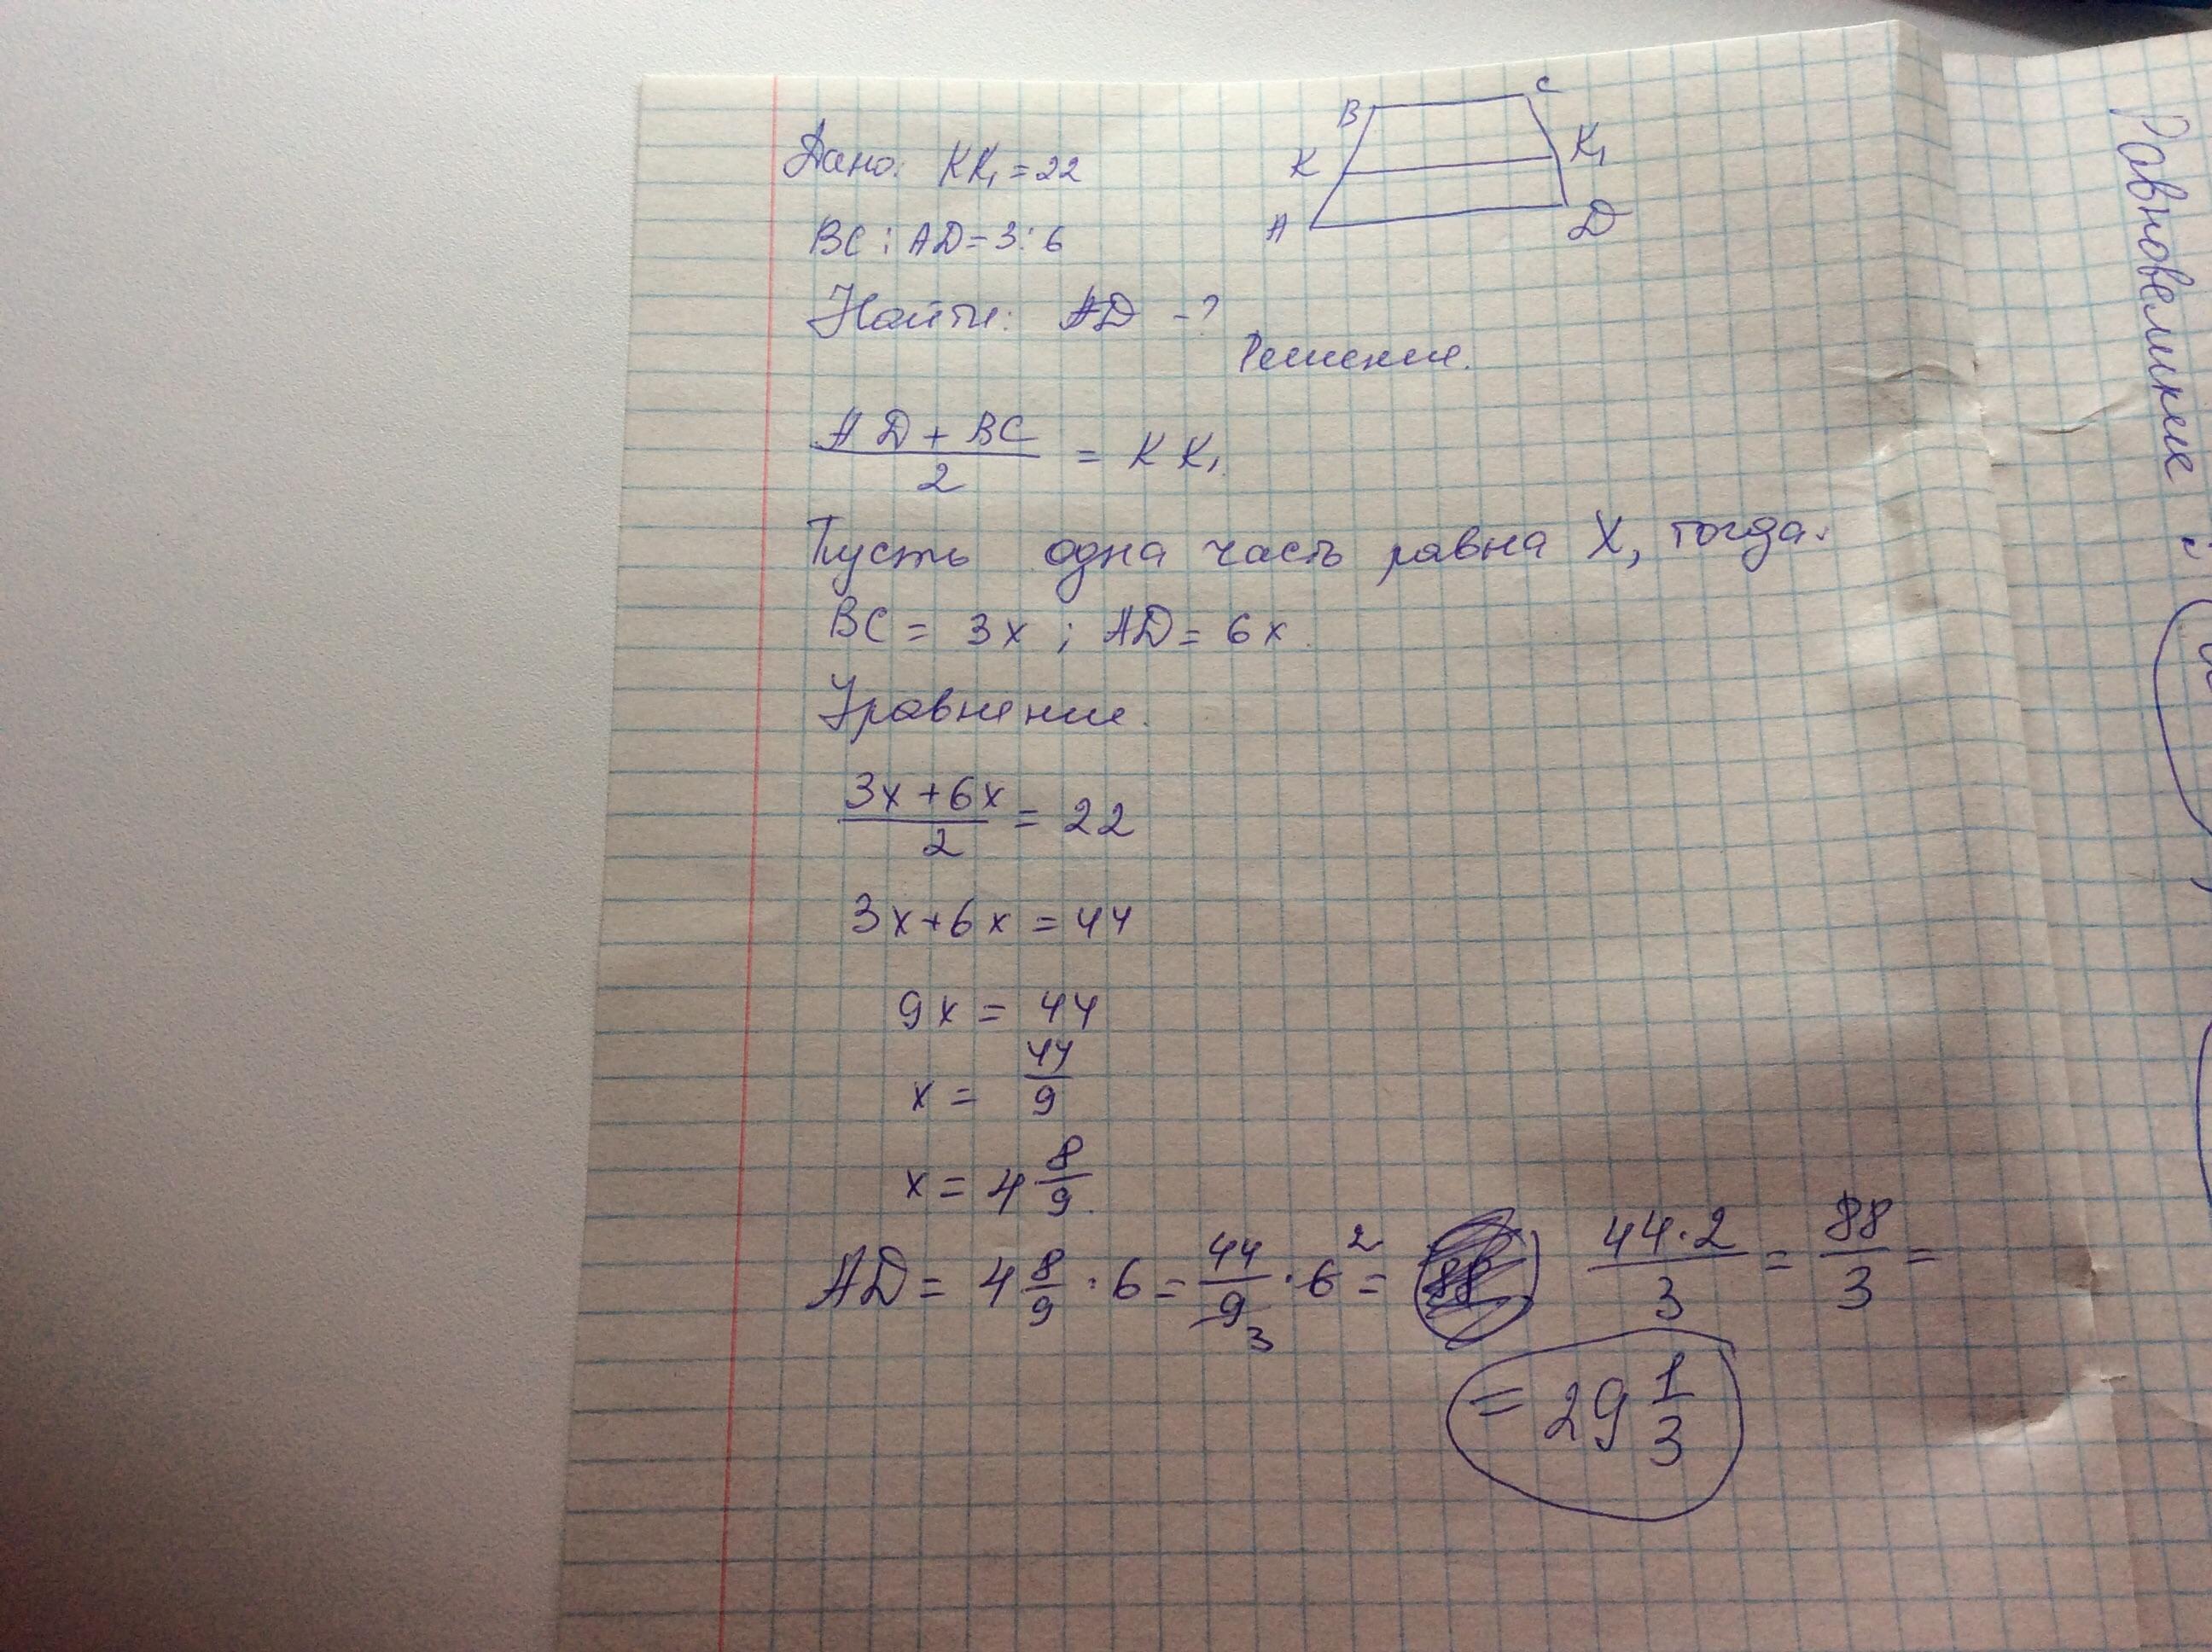 B
C
K
K₁
A
D
Дано: KK₁ = 22
BC : AD = 3 : 6
Найти: AD - ?
Решение.
AD + BC
2
= KK₁.
Пусть одна часть равна X, тогда.
BC = 3x ; AD = 6x.
Уравнение.
3x + 6x
2
= 22
3x + 6x = 44
9x = 44
x = 44/9
x = 4 8/9.
AD = 4 8/9 · 6 = 44/9 3 · 6 2 = 44·2/3 = 88/3 =
= 29 1/3
Равновеликие